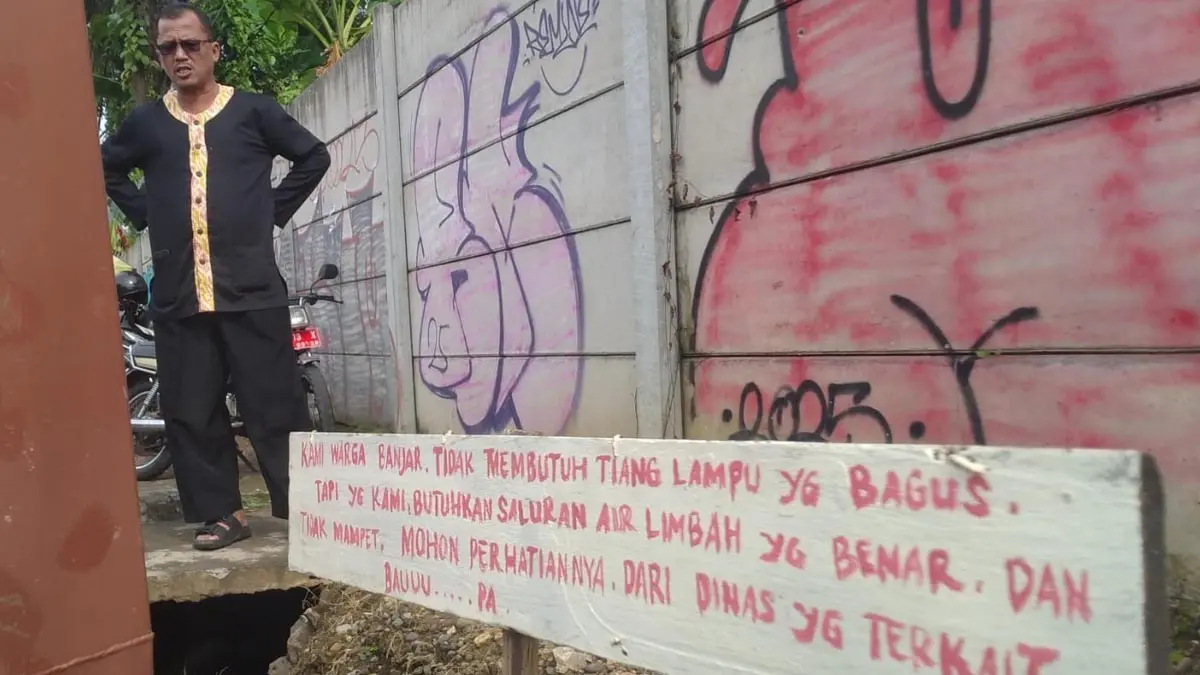 KAMI WARGA BANJAR. TIDAK MEMBUTUH TIANG LAMPU YG BAGUS.
TAPI YG KAMI. BUTUHKAN SALURAN AIR LIMBAH YG BENAR. DAN
TIDAK MAMPET. MOHON PERHATIANNYA. DARI DINAS YG TERKAIT
BAUUU..... PA..